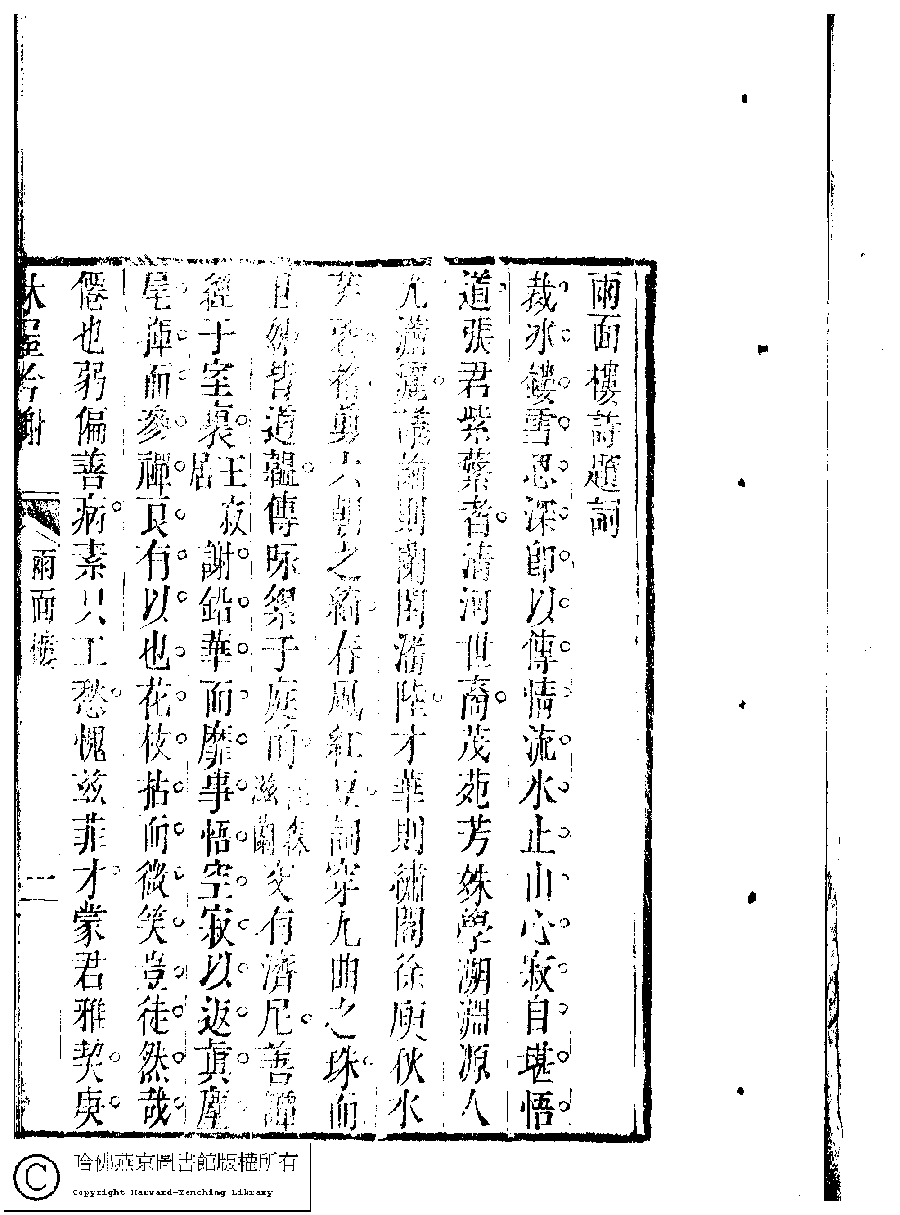 雨面樓詩題詞
裁冰鏤雪忍深郎以傳情流水止山心寂自堪悟
道張君紫蘩者清河世裔茂苑芳姝學溯淵源人
尤瀟灑議論則蘭閨潘陸才華則繡閣徐庾秋水
芙蓉格剪六朝之綺春風紅豆詞穿九曲之珠而
且妙皆道韞傳咏絮子庭前汪森滋蘭交有濟尼善譚
經于室裏王寂居謝鉛華而靡事悟空寂以返真麈
尾揮而參禪良有以也花枝拈而微笑豈徒然哉
僊也弱偏善病素只工愁愧茲菲才蒙君雅契庚
林屋吟榭
雨面樓
一
哈佛燕京圖書館版權所有
Copyright Harvard-Yenching Library